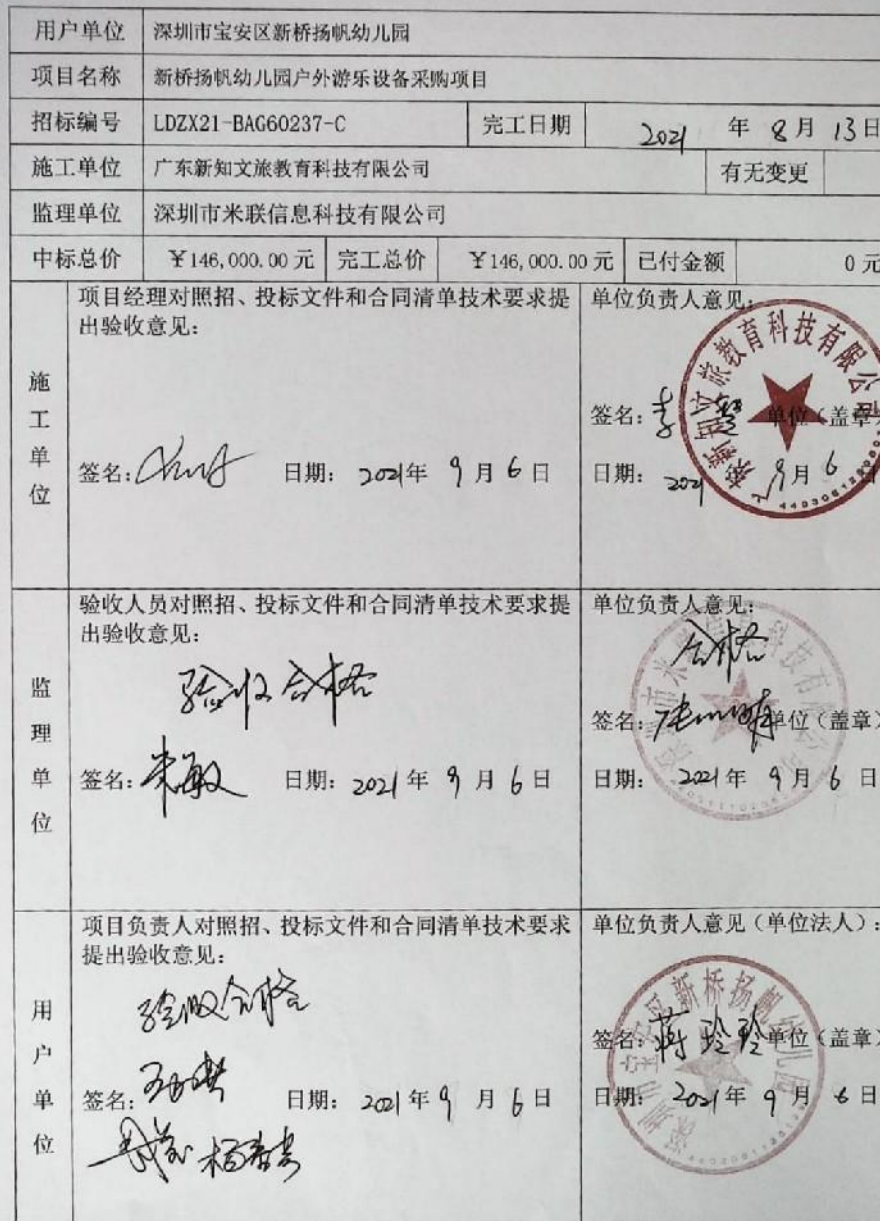 用户单位 深圳市宝安区新桥扬帆幼儿园
项目名称 新桥扬帆幼儿园户外游乐设备采购项目
招标编号 LDZX21-BAG60237-C 完工日期 2021 年 8月 13日
施工单位 广东新知文旅教育科技有限公司 有无变更
监理单位 深圳市米联信息科技有限公司
中标总价 ￥146,000.00 元 完工总价 ￥146,000.00 元 已付金额 0 元
施工单位
项目经理对照招、投标文件和合同清单技术要求提
出验收意见:
签名: 日期: 2021年 9月 6日
单位负责人意见:
签名: 李 单位(盖章)
日期: 2021 年 9月 6日
新知文旅教育科技有限公司
监理单位
验收人员对照招、投标文件和合同清单技术要求提
出验收意见:
验收合格
签名: 米敏 日期: 2021年 9月 6日
单位负责人意见:
合格
签名: 单位(盖章)
日期: 2021年 9月 6日
市米 科技有限公司
用户单位
项目负责人对照招、投标文件和合同清单技术要求
提出验收意见:
验收合格
签名: 日期: 2021年 9月 6日
杨春
单位负责人意见(单位法人):
签名: 蒋玲玲 单位(盖章)
日期: 2021年 9月 6日
深圳市宝安区新桥扬帆幼儿园